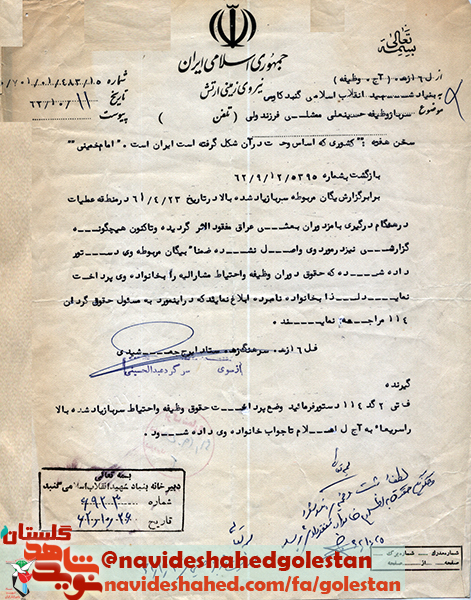 بسمه تعالی
جمهوری اسلامی ایران
نیروی زمینی ارتش
شماره ۷۰۱/۰۱/۴۸۳/۱۵
تاریخ ۶۲/۱۰/۱۱
پیوست
از ل ۱۶ زره (آج - وظیفه)
به بنیاد شهید انقلاب اسلامی گنبد کاوس
موضوع سرباز وظیفه حسینعلی فرزند ولی ( تلفن )
سخن هفته : "کشوری که اساس وحدت در آن شکل گرفته است ایران است . "امام خمینی"
بازگشت بشماره ۶۲/۹/۱۲/۵۳۹۵
برابر گزارش یگان مربوطه سرباز یاد شده بالا در تاریخ ۶۱/۴/۲۳ در منطقه عملیات
در هنگام درگیری با مزدوران بعثی عراق مفقود الاثر گردیده و تاکنون هیچگونه
گزارشی نیز در مورد وی واصل نشده ضمنا" بیگان مربوطه وی دستور
داده شده که حقوق دوران وظیفه و احتیاط مشارالیه را بخانواده وی پرداخت
نمایند لذا بخانواده نامبرده ابلاغ نمایند که در اینمورد به مسئول حقوق گردان
۱۱۴ مراجعه نمایند
ف ل ۱۶ زره سرهنگ زره ستاد ایرج جمشیدی
از سوی سرگرد عبدالحسینی
گیرنده
ف تی ۲ گد ۱۱۴ دستور فرمائید وضع پرداخت حقوق وظیفه و احتیاط سرباز یاد شده بالا
را سریعا" به آج ل اعلام تا جواب خانواده وی داده شود
بسمه تعالی
دبیرخانه بنیاد شهید انقلاب اسلامی گنبد
شماره ۴۹۲۰۳
تاریخ ۶۲،۱۰،۲۶
شماره مدرک
شماره برگ
صفحه از صفحه
نوید شاهد گلستان
@navideshahedgolestan
navideshahed.com/fa/golestan